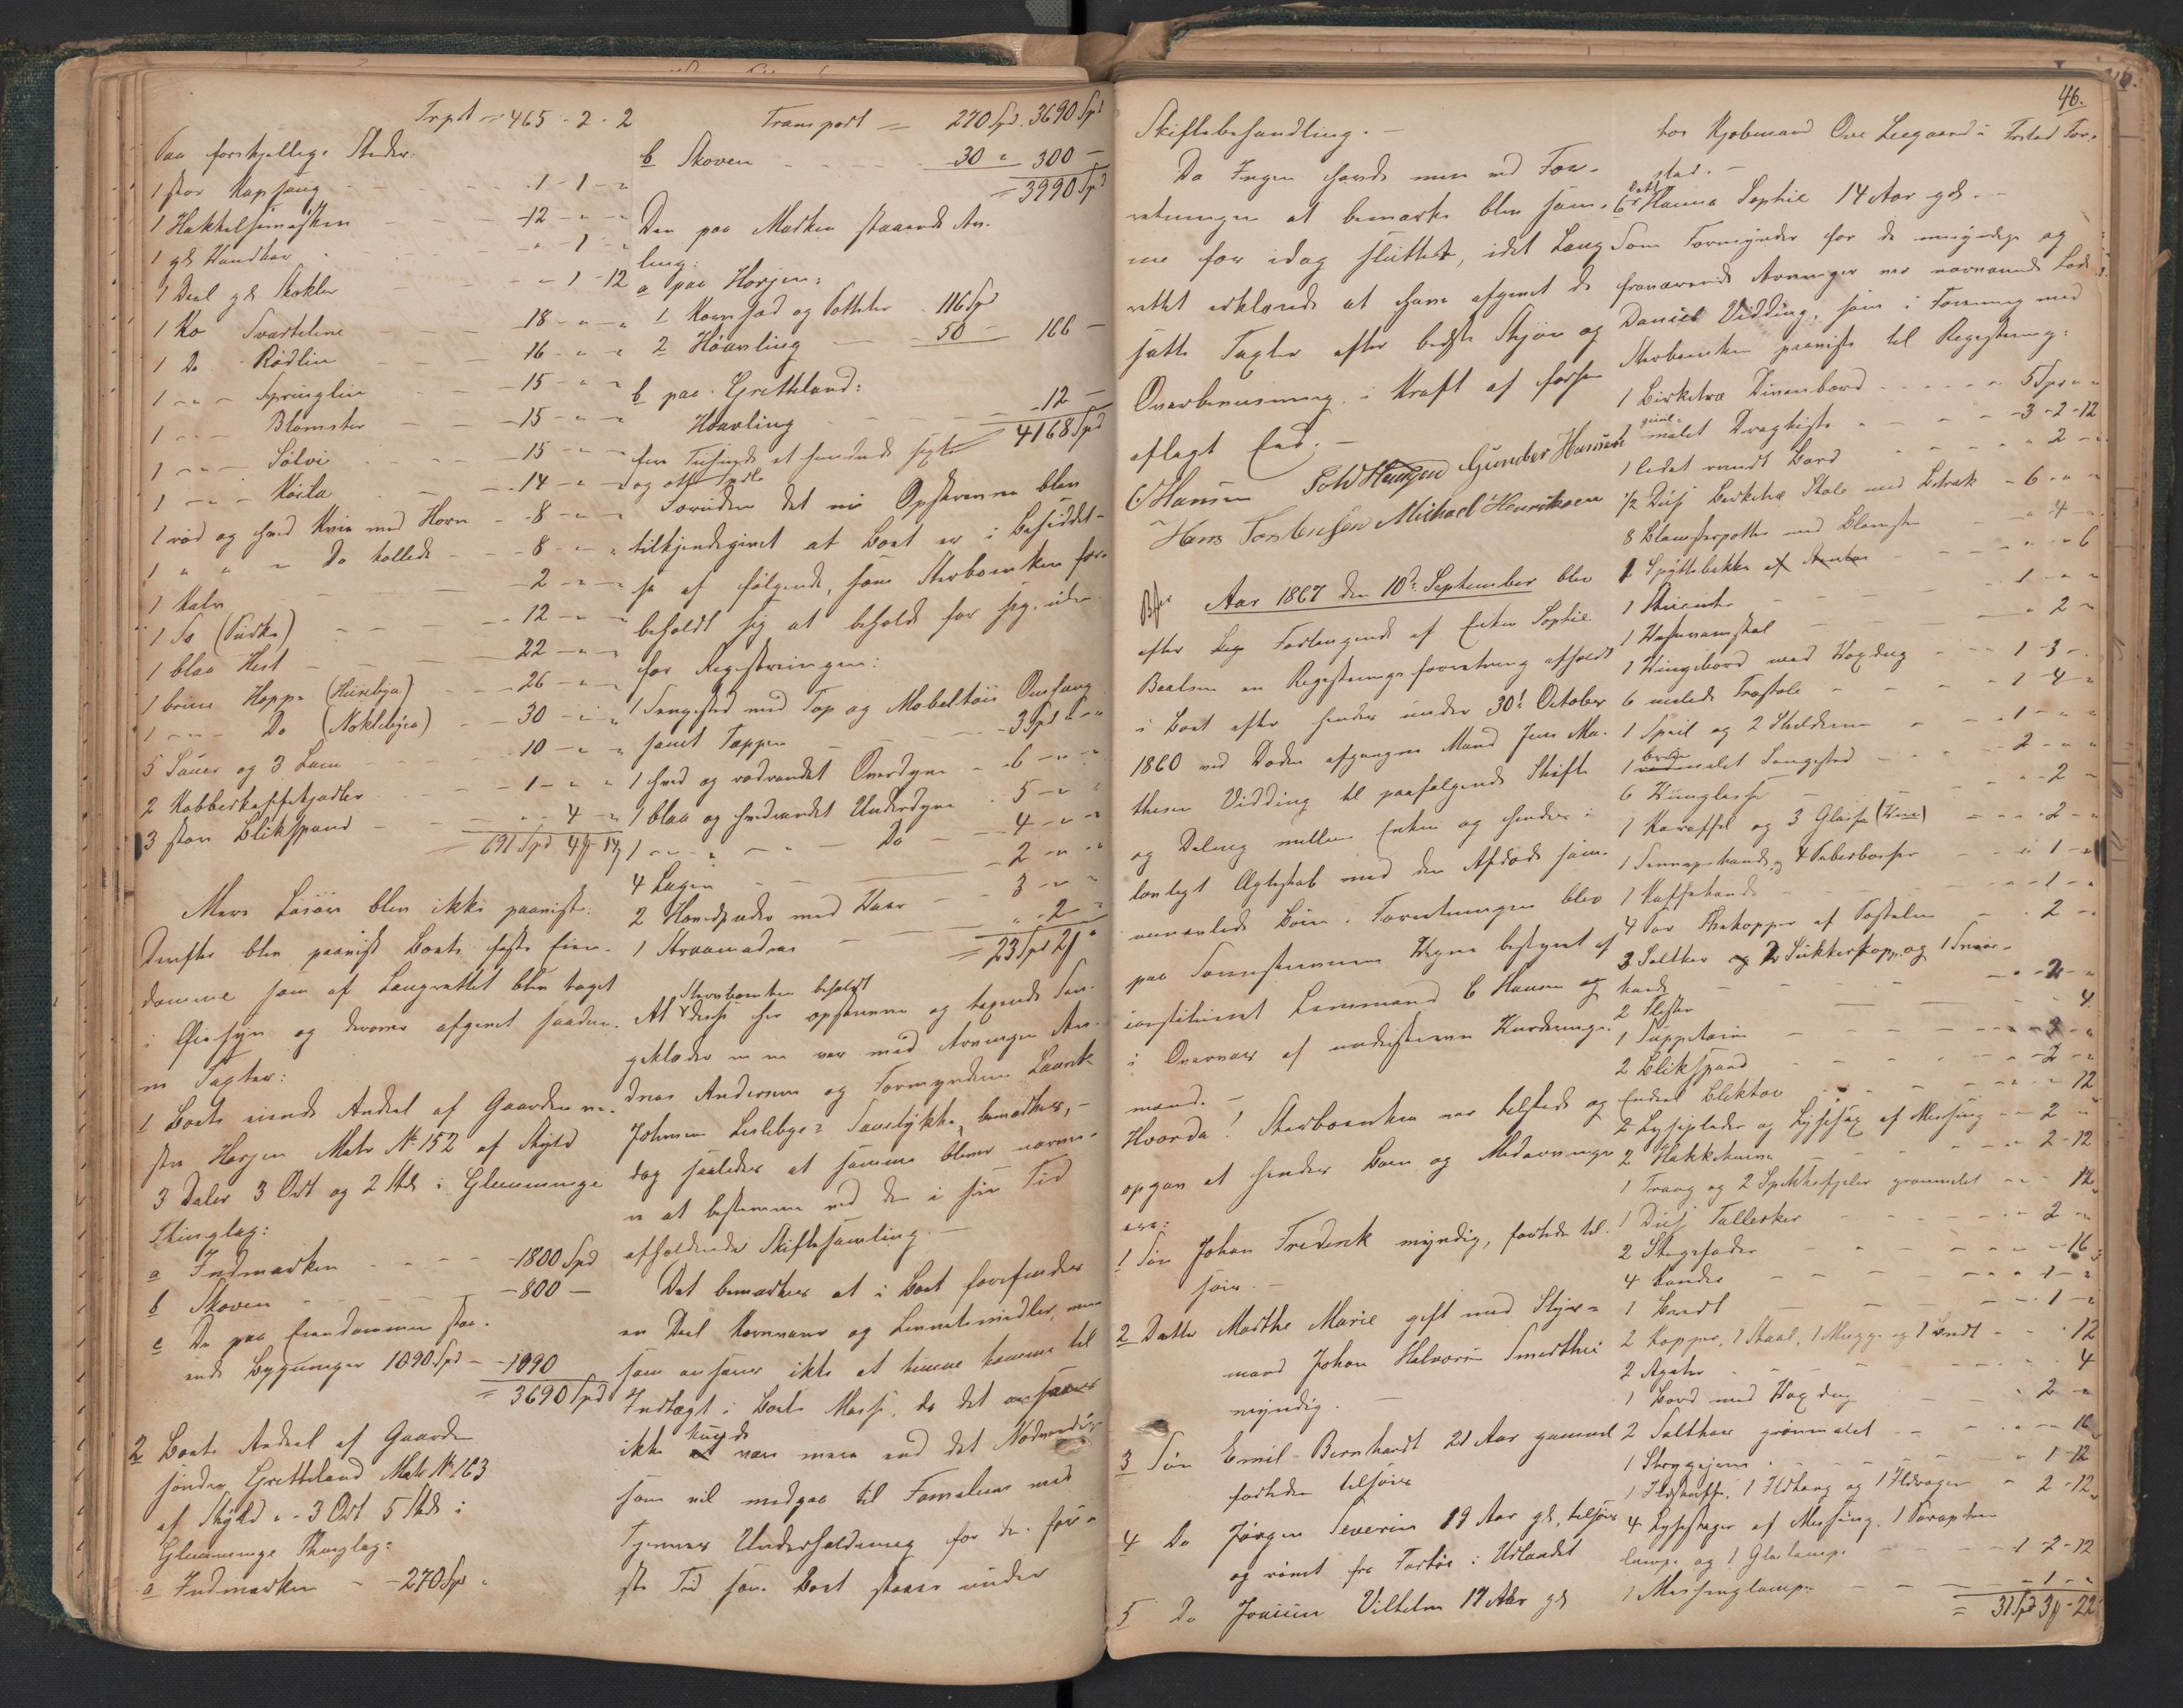 Trpt = 465 - 2 - 2
Paa forskjellige Steder:
1 stor Kapsaug - - - 1 - 1 - "
1 Hakkelsemaskin - - 12 - " - "
1 gl Handkar - - " - 1 - "
1 Deel gl Skokler - - " - 1 - 12
1 Ko Svarteline - - 18 - " - "
1 Do Rødlin - - 16 - " - "
1 - " - Springlin - - 15 - " - "
1 - " - Blomster - - 15 - " - "
1 - " - Sølvi - - 15 - " - "
1 - " - Koila - - 14 - " - "
1 rød og hvid Kvie med Horn - 8 - " - "
1 " " " Do kollede - - 8 - " - "
1 Kalv - - 2 - " - "
1 So (Purke) - - 12 - " - "
1 blaa Hest - - 22 - " - "
1 brun Hoppe (Husebya) - - 26 - " - "
1 - " - Do (Noklebya) - - 30 - " - "
5 Sauer og 3 Lam - - 10 - " - "
2 Kobberkaffekjedler - - 1 - " - "
3 store Blikspand - - " - 4 - "
= 691 Spd 4 - 14
Mere Løsøre blev ikke paavist.
Derefter blev paavist Boets faste Eien-
domme som af Laugrettet blev taget
i Øiesyn og derover afgivet saadan-
ne Taxter:
1 Boets eiende Andeel af Gaarden ve-
stre Horgen Matr No 152 af Skyld
3 Daler 3 Ort og 2 Skl i Glemminge
Thinglag:
a Indmarken - - 1800 Spd
b Skoven - - 800 -
c De paa Eiendommen sta-
ende Bygninger 1090 Spd - 1090
= 3690 Spd
2 Boets Andeel af Gaarden
søndre Gretteland Matr No 163
af Skyld " - 3 Ort 5 Skl i
Glemminge Thinglag:
a Indmarken - - 270 Spd "
Transport = 270 Spd. 3690 Spd
b Skoven - - 30 " 300 -
= 3990 Spd
Den paa Marken staaende Av-
ling:
a paa Horgen:
1 Kornsæd og Potteter 116 Spd
2 Høavling - 50 - 166 -
b paa Gretteland:
Høavling - - 12 -
4168 Spd
fire Tusinde et hundrede sexti
og otte Spdlr
Foruden det nu Opskrevne blev
tilkjendegivet at Boet er i Besiddel-
se af følgende, som Sterboenken for-
beholdt sig at beholde for sig, uden-
for Registreringen:
1 Sengested med Top og Mobeltøis Omhæng
samt Tæppe - - 3 Spd " - "
1 hvid og rødrandet Overdyne - 6 - " - "
1 blaa og hvidrandet Underdyne - 5 - " - "
1 - " - " - Do - 4 - " - "
4 Lagen - - 2 - " - "
2 Hovedpuder med Vaar - 3 - " - "
1 Straamadras - - " - 2 - "
= 23 Spd 2 "
Sterboenken beholdt
At disse her opskrevne og tagende Sen-
geklæder m m var med Arvingen An-
dreas Andersens og Formynderen Laurits
Johnsen Lislebye i Savelykke, bemærkes, -
dog saaledes at samme bliver nærme-
re at bestemme ved den i sin Tid
afholdende Skiftesamling. -
Det bemærkes at i Boet forefindes
en Deel Kornvarer og Levnetsmidler, men
som ansees ikke at kunne komme til
Indtægt i Boets Masse, da det ansees
ikke kunde være mere end det Nødvendige
som vil medgaa til Familiens med
Tjeneres Underholdning for den før-
ste Tid som Boet staaer under
46.
Skiftebehandling. -
Da Ingen havde mere ved For-
retningen at bemærke blev sam-
me for idag sluttet, idet Laug-
rettet erklærede at have afgivet de
satte Taxter efter bedste Skjøn og
Overbeviisning i Kraft af forhen
aflagt Eed. -
C Hansen Gunder Hansen
Hans Torstensen Michael Henriksen
Aar 1867 den 10de September blev
efter Forlangende af Enken Sophie
Boelsen en Registreringsforretning afholdt
i Boet efter hendes under 30te October
1860 ved Døden afgangne Mand Jens Ma-
thesen Vidding til paafølgende Skifte
og Deling mellem Enken og hendes i
lovligt Ægteskab med den Afdøde sam-
menavlede Børn. Forretningen blev
paa Sorenskriverens Vegne bestyret af
constitueret Lensmand C Hansen og
i Overvær af undertegnede Vurderings-
mænd. -
Hvorda! Sterboenken var tilstede og
opgav at hendes Børn og Medarvinger
ere:
1 Søn Johan Frederik myndig, farende til
søes. -
2 Datter Marthe Marie gift med Styr-
mand Johan Halvorsen Smerthu
myndig. -
3 Søn Emil Bernhardt 21 Aar gammel
farende tilsøes
4 Do Jørgen Severin 19 Aar gl, tilsøes
og rømt fra Fartøi i Udlandet
5 Do Jensen Vilhelm 17 Aar gl
hos Kjøbmand Ove Leegaard i Fredrikstad For-
stad. -
6 Datter Hanna Sophie 14 Aar gl. -
Som Formynder for de umyndige og
fraværende Arvinger var nærværende Lods
Daniel Vidding, som i Forening med
Sterboenken paaviste til Registrering:
1 Birketræ Divanbord - - 5 Spd " "
1 guul- malet Dragkiste - - 3 - 2 - 12
1 lidet rundt Bord - - " 2 - "
1/2 Dus Birketræ Stole med Betræk - 6 - " "
8 Blomsterpotter med Blomster - " 4 -
2 Spyttebakker - - " - " 6
1 Stueuhr - - 1 - " "
1 Haarvamskal - - " 2 "
1 Klingebord med Voxdug - - 1 - 3 -
6 malede Træstole - - 1 - 4 - "
1 Speil og 2 Skilderier - - 1 - " "
1 bruunmalet Sengested - - 2 - " "
6 Viinglasse - - " 2 -
1 Karaffel og 3 Glasse (Viin) - - 2 - "
1 Sennepskande, 4 Peberbøsser - - " 1 - "
1 Kaffekande - - " 1 - "
4 Par Thekopper af Postelin - . 2 -
3 Saltkar 2 Sukkerkopper og 1 Smør-
kande - - " 2 "
2 Flasker - - 4.
1 Suppeterin - - " 3 "
2 Blikspand - - " 2 - "
Endeel Bliktøi - - " " 12
2 Lyseplader og Lysesax af Messing - 2 "
2 Hakkeknive - - " 2 - 12
1 Traug og 2 Spekkefjeler grønmalet - - 12
1 Dus Tallerker - - 2 -
2 Stegefade - - " 16
4 Kander - - " 1 - "
1 Brødt - - " 1 - "
2 Kopper, 1 Skaal, 1 Mugge og 1 Brødt - 12
2 Agaler - - 4
1 Bord med Voxdug - - 2 -
2 Saltkar grønmalet - - " 16
1 Strygejern - - " 1 - 12
1 Ildskuffe, 1 Ildtang og 1 Ildrager - " 2 - 12
4 Lysestager af Messing, 1 Paraphin
lampe og 1 Glaslampe - - 1 - 2 - 12
1 Messinglampe - - 1 - "
= 31 Spd 3 - 22